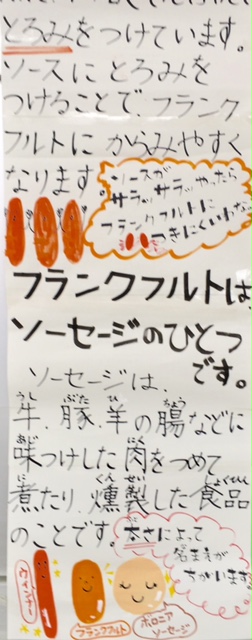 とろみをつけています。
ソースにとろみを
つけることで、フランク
フルトにからみやすく
なります。
ソースが
サラッサラッやったら
フランクフルトに
つきにくいわな
フランクフルトは、
ソーセージのひとつ
です。
ソーセージは、
牛、豚、羊の腸などに
うし ぶた ひつじ ちょう
味つけした肉をつめて
あじ にく
煮たり、燻製した食品
に くんせい しょくひん
のことです。
太さによって
名まえが
ちがいます
ウインナー
フランクフルト
ボロニア
ソーセージ